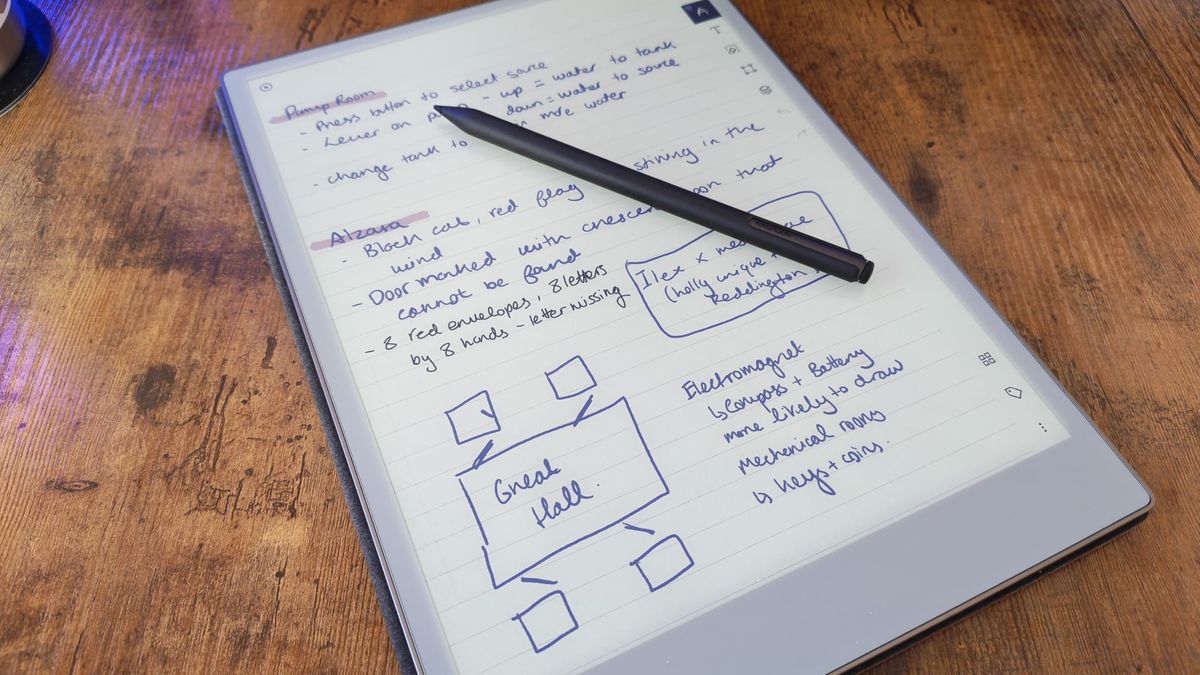 Pump Room
- Press button to select source
- Lever on - up = water to tank
down = water to source
- change tank to more water
Alzara
- Black cat, red flag stirring in the
wind
- Door marked with crescent moon that
cannot be found
- 8 red envelopes, 8 letters
by 8 hands - letter missing
Ilex x
(holly unique
Reddington
Great
Hall.
Electromagnet
↳ Compass + Battery
more likely to draw
Mechanical rooms
↳ keys + coins.
A
T